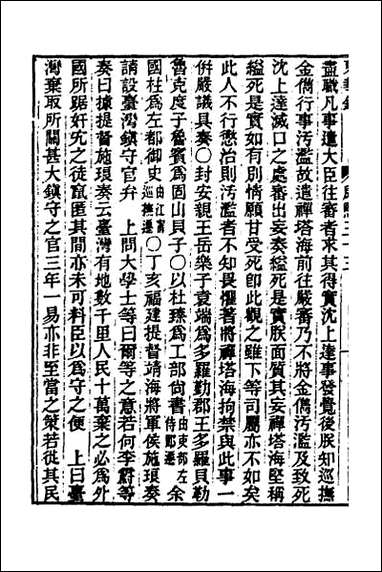 盡職凡事遣大臣往審者求其得實沈上達事發覺後朕知巡撫
金儁行事汚濫故遣禪塔海前往嚴審乃不將金儁汚濫及致死
沈上達滅口之處審出妄奏縊死是實朕面質其妄禪塔海堅稱
縊死是實如有別情願甘受死卽此觀之雖下等司屬亦不如矣
此人不行懲治則汚濫者不知畏懼著將禪塔海拘禁與此事一
倂嚴議具奏〇封安親王岳樂子袁端爲多羅勤郡王多羅貝勒
魯克度子魯賓爲固山貝子〇以杜臻爲工部尙書由吏部左侍郎遷余
國柱爲左都御史由江甯巡撫遷〇丁亥福建提督靖海將軍侯施琅奏
請設臺灣鎭守官弁　上問大學士等曰爾等之意若何李霨等
奏曰據提督施琅奏云臺灣有地數千里人民十萬棄之必爲外
國所踞奸宄之徒竄匿其間亦未可料臣以爲守之便　上曰臺
灣棄取所關甚大鎭守之官三年一易亦非至當之策若徙其民